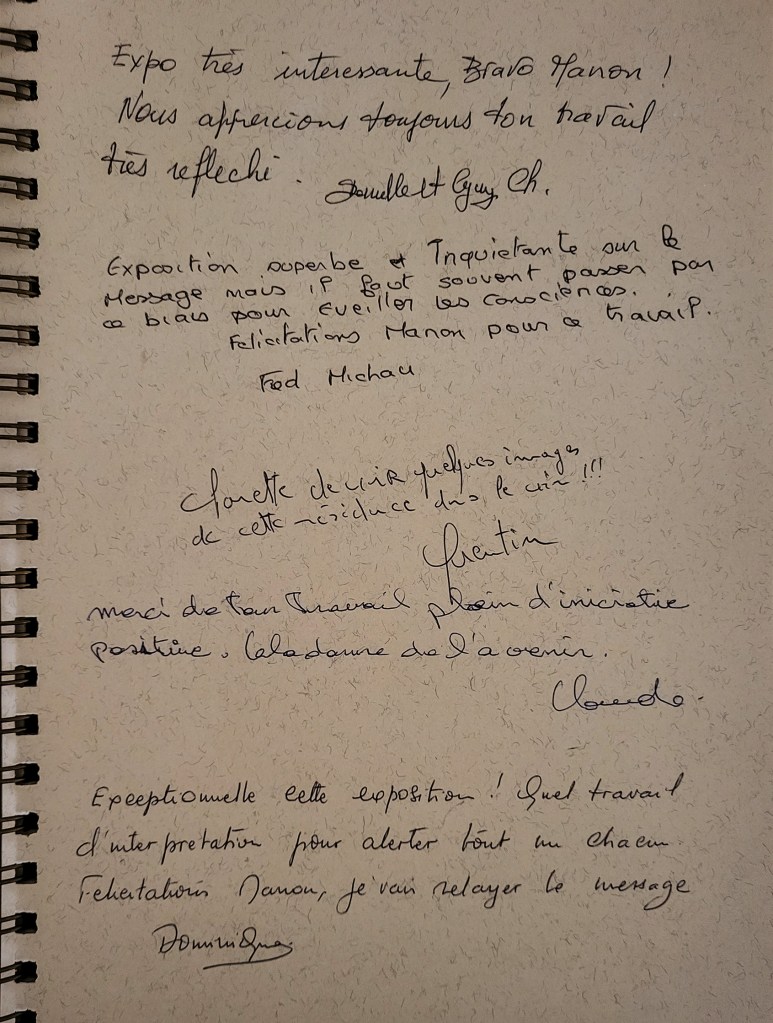 Expo très interessante, Bravo Manon !
Nous apprecions toujours ton travail
très reflechi. Danielle et Guy Ch.
Exposition superbe et Inquietante sur le
Message mais il faut souvent passer par
ce biais pour Eveiller les consciences.
Felicitations Manon pour ce travail.
Fred Michau
Chouette de voir quelques images
de cette résidence dans le coin !!!
Quentin
merci de ton travail plein d'iniciative
positive. Cela donne de l'avenir.
Claude.
Exceptionnelle cette exposition ! Quel travail
d'interpretation pour alerter tout un chacun
Felicitations Manon, je vais relayer le message
Dominique